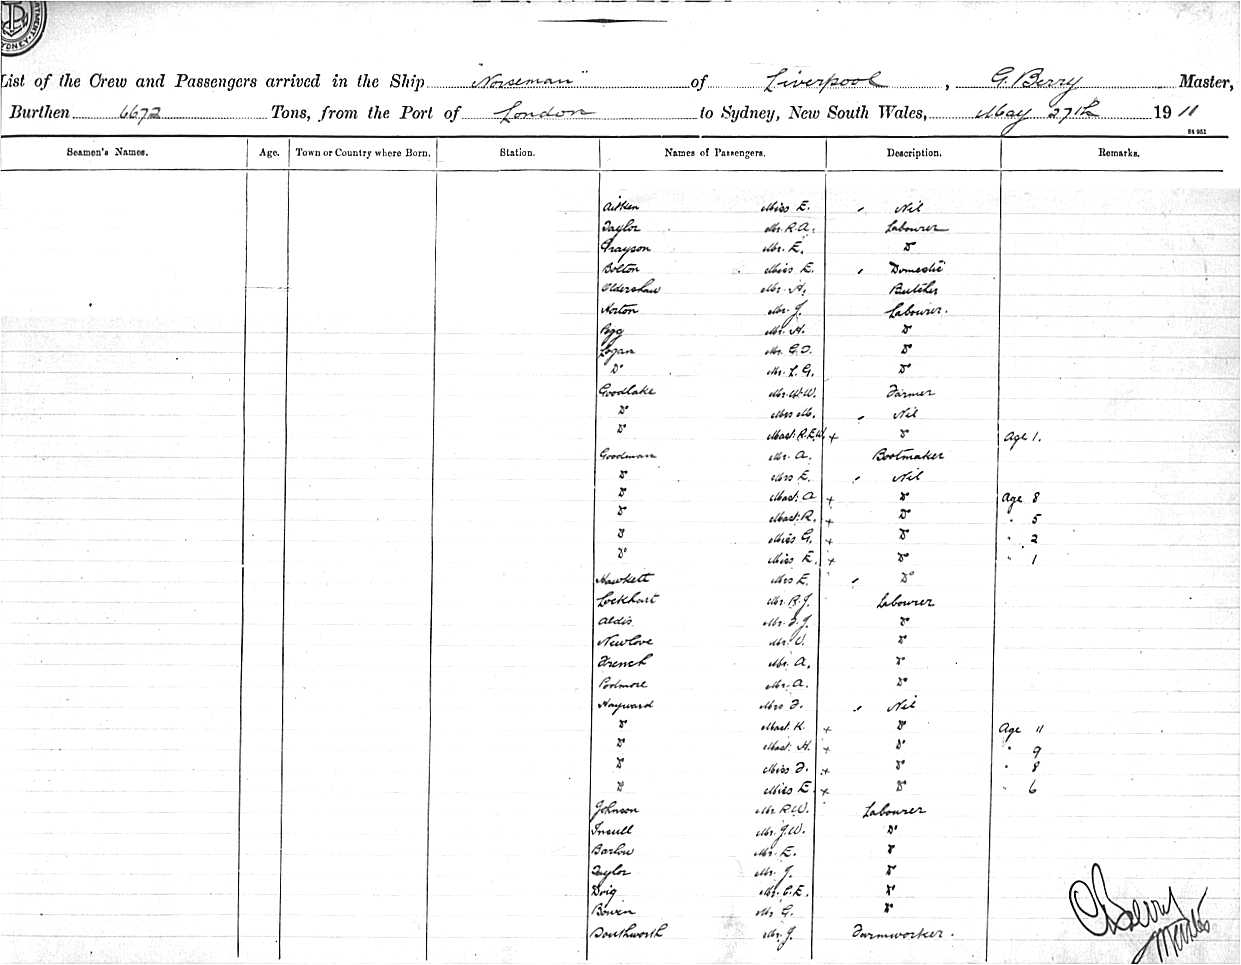 List of the Crew and Passengers arrived in the Ship "Norseman" of Liverpool, G. Berry Master,
Burthen 6672 Tons, from the Port of London to Sydney, New South Wales, May 27th 1911
Seamen's Names. Age. Town or Country where Born. Station. Names of Passengers. Description. Remarks.
Aitken Miss E. Nil
Taylor Mr. R.A. Labourer
Grayson Mr. E. Do
Bolton Miss E. Domestic
Oldershaw Mr. H. Butcher
Norton Mr. J. Labourer.
Pegg Mr. H. Do
Logan Mr. G.D. Do
Do Mr. L.G. Do
Goodlake Mr. W.W. Farmer
Do Mrs M. Nil
Do Mast. R.E.W. + Do Age 1.
Goodman Mr. A. Bootmaker
Do Mrs E. Nil
Do Mast. A + Do Age 8
Do Mast. R. + Do " 5
Do Miss G. + Do " 2
Do Miss E. + Do " 1
Hawkett Mrs E. Do
Lockhart Mr. R.J. Labourer
Aldis Mr. F.J. Do
Newlove Mr. Do
French Mr. A. Do
Podmore Mr. A. Do
Hayward Mrs F. Nil
Do Mast. K. + Do Age 11
Do Mast. H. + Do " 9
Do Miss F. + Do " 8
Do Miss E. + Do " 6
Johnson Mr R.W. Labourer
Insull Mr. J.W. Do
Barlow Mr. E. Do
Taylor Mr. J. Do
Mr. C.E. Do
Bowen Mr G. Do
Southworth Mr. J. Farmworker.
Berry
Master